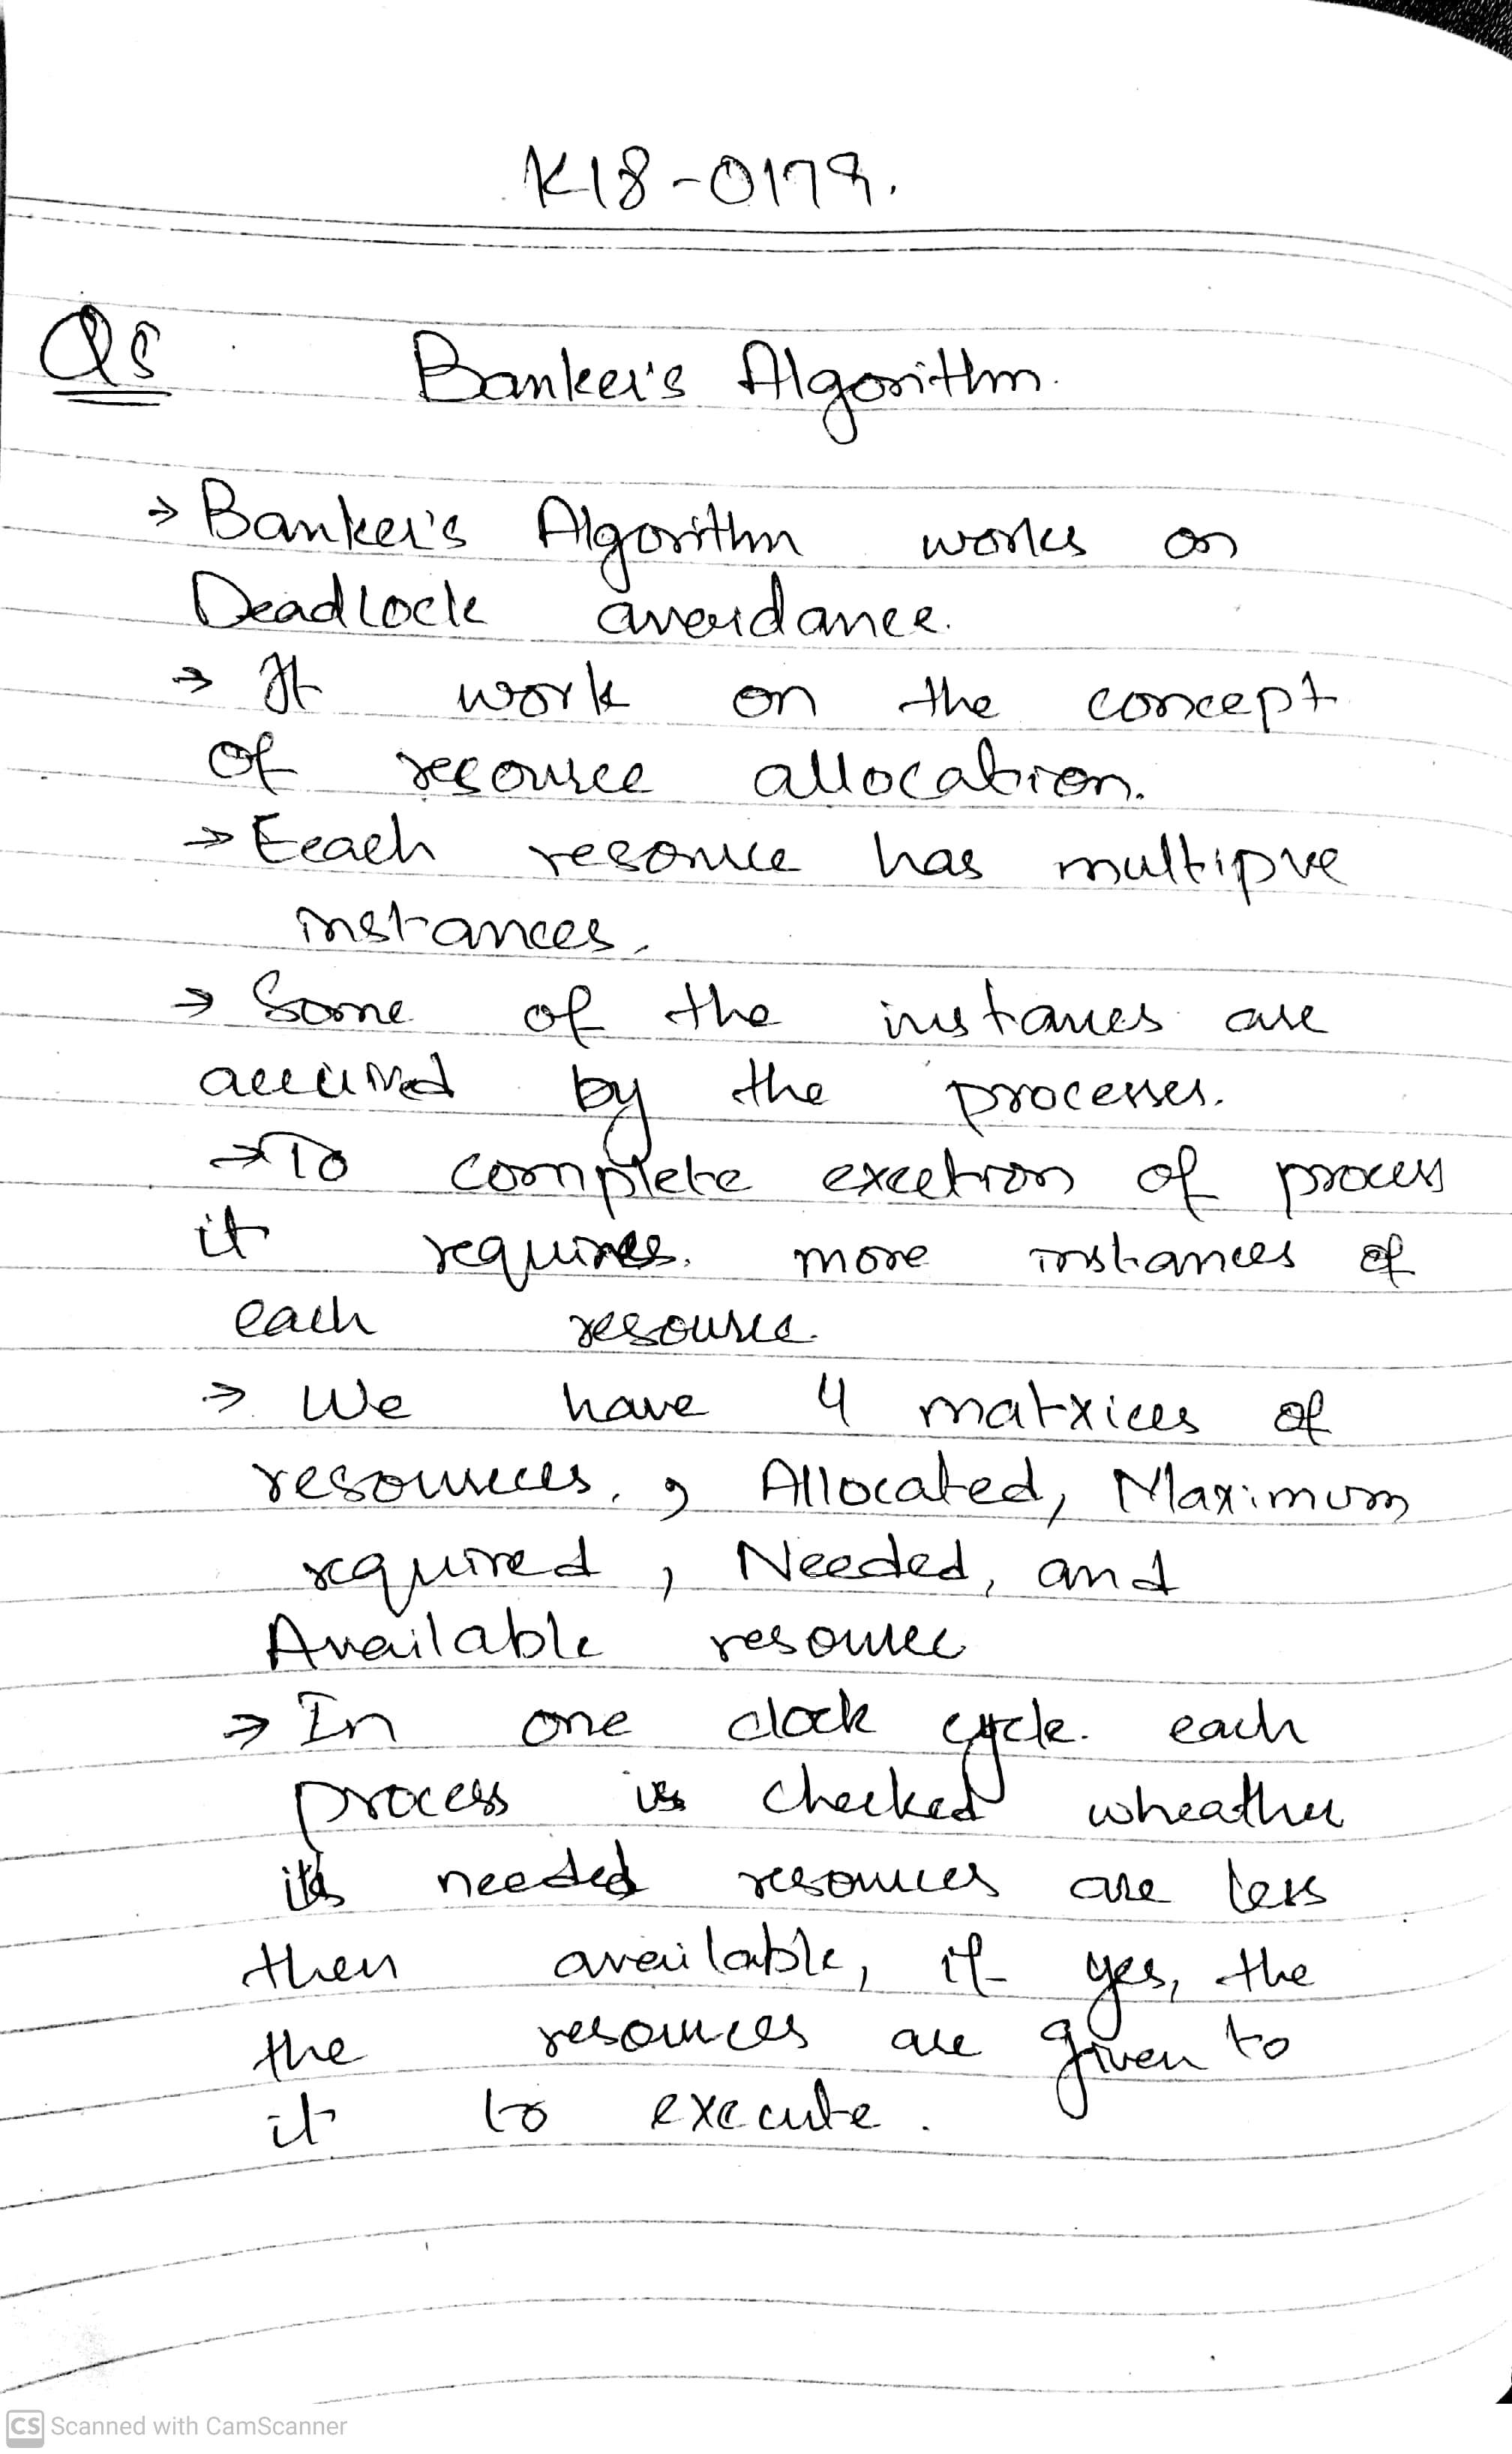 K18-0179.
Q5 Banker's Algorithm.
→ Banker's Algorithm works on
Deadlock avoidance.
→ It work on the concept
of resource allocation.
→ Eeach resource has multiple
instances.
→ Some of the instances are
by the processes.
→ To complete exection of process
it requires. more instances of
each resource.
→ We have 4 matrices of
resources, , Allocated, Maximum
required , Needed, and
Available resource
→ In one clock cycle. each
process is checked wheather
its needed resources are less
then available, if yes, the
the resources are given to
it to execute.
CS Scanned with CamScanner